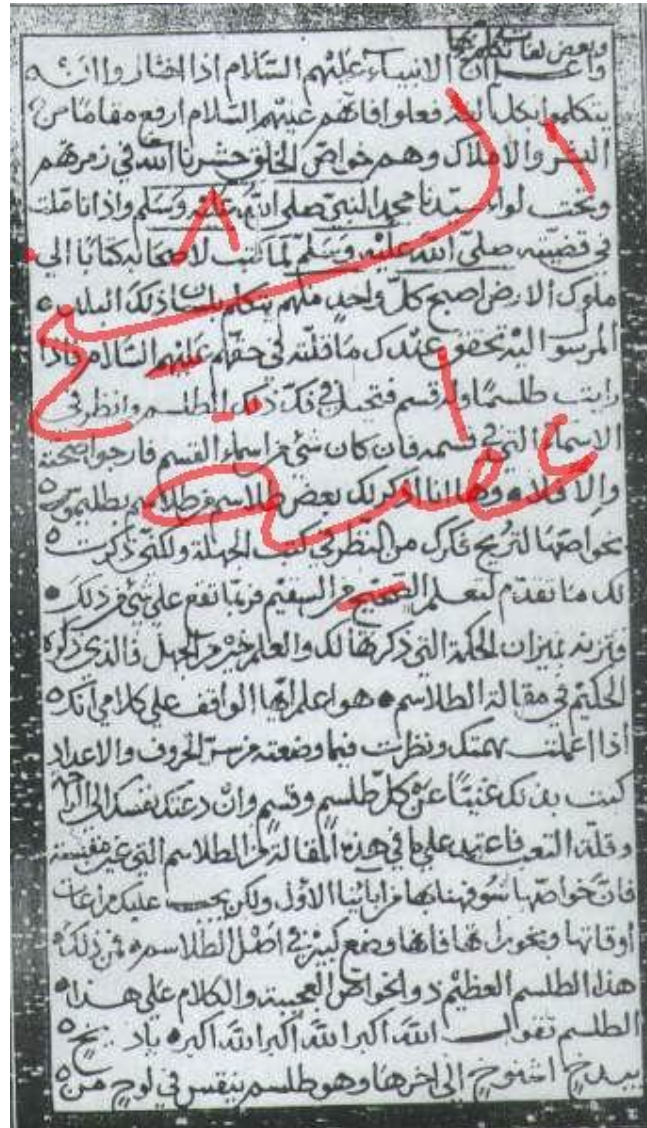 وبعض لغات تتكلم بها
واعلم ان الانبياء عليهم السلام اذا اختاروا انه
يتكلموا بكل لغة فعلوا فانهم عليهم السلام ارفع مقاما من
البشر والاملاك وهم خواص الخلق حشرنا الله في زمرتهم
وتحت لواء سيدنا محمد النبي صلى الله عليه وسلم واذا تاملت
في قضيته صلى الله عليه وسلم لما كتب لاصحابه كتابا الى
ملوك الارض اصبح كل واحد منهم يتكلم بلسان ذلك البلد
المرسول اليه تحقق عندك ما قلته في حقهم عليهم السلام فاذا
رايت طلسما وله قسم فتحيل في فك ذلك الطلسم وانظر في
الاسماء التي في قسمه فان كان شئ من اسماء القسم فارجوا صحته
والا فلا وها انا اذكر لك بعض طلاسم من طلاسم بطليموس
بخواصها لتريح فكرك من النظر في كتب الجهلة ولكني ذكرت
لك ما تقدم لتعلم الصحيح من السقيم فربما تقع على شئ من ذلك
فتزنه بميزان الحكمة التي ذكرتها لك والعلم خير من الجهل فالذي ذكره
الحكيم في مقالة الطلاسم هو اعلم ايها الواقف على كلامي انك
اذا اعملت همتك ونظرت فيما وضعته من سر الحروف والاعداد
كنت بذلك غنيا عن كل طلسم وقسم وان دعتك نفسك الى الراحة
وقلة التعب فاعتمد على ما في هذه المقالة من الطلاسم التي غير مقسمة
فان خواصها شوفهنا بها من ابائنا الاول ولكن يجب عليك مراعات
اوقاتها وبخوراتها فانها وضع كبير في اصل الطلاسم فمن ذلك
هذا الطلسم العظيم ذو الخواص العجيبة والكلام على هذا
الطلسم تقول الله اكبر الله اكبر الله اكبر
الى اخرها وهو طلسم ينقس في لوح من